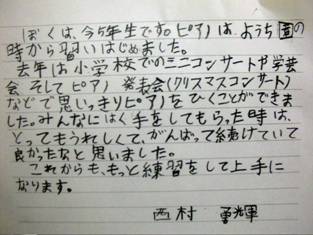 ぼくは、今5年生です。ピアノは、ようち園の
時から習いはじめました。
去年は小学校でのミニコンサートや学芸
会、そしてピアノ発表会(クリスマスコンサート)
などで思いっきりピアノをひくことができま
した。みんなにはく手をしてもらった時は、
とってもうれしくて、がんばって続けていて
良かったなと思いました。
これからも、もっと練習をして上手に
なります。
西村 勇輝